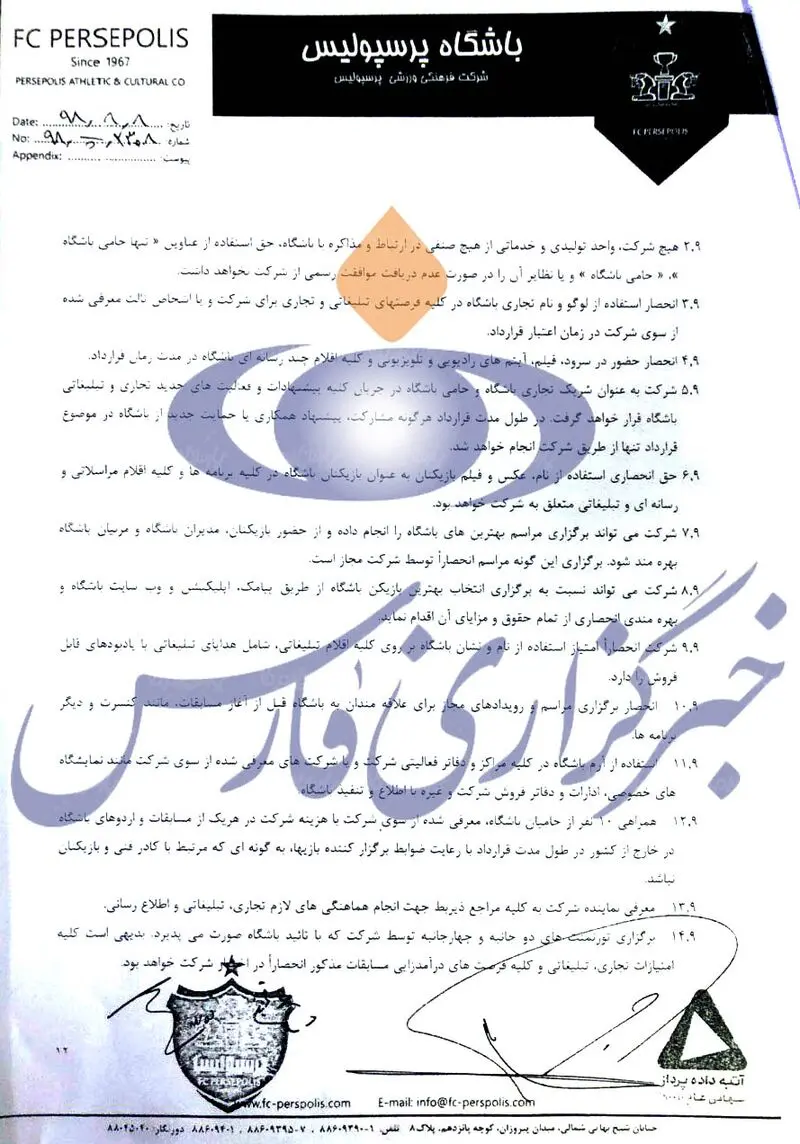 FC PERSEPOLIS
Since 1967
PERSEPOLIS ATHLETIC & CULTURAL CO
باشگاه پرسپولیس
شرکت فرهنگی ورزشی پرسپولیس
FC PERSEPOLIS
Date: ۹۸,۶,۸ تاریخ:
No: شماره
Appendix: پیوست:
۲.۹ هیچ شرکت، واحد تولیدی و خدماتی از هیچ صنفی در ارتباط و مذاکره با باشگاه، حق استفاده از عناوین « تنها حامی باشگاه
»، « حامی باشگاه » و یا نظایر آن را در صورت عدم دریافت موافقت رسمی از شرکت نخواهد داشت.
۳.۹ انحصار استفاده از لوگو و نام تجاری باشگاه در کلیه فرصتهای تبلیغاتی و تجاری برای شرکت و یا اشخاص ثالث معرفی شده
از سوی شرکت در زمان اعتبار قرارداد.
۴.۹ انحصار حضور در سرود، فیلم، آیتم های رادیویی و تلویزیونی و کلیه اقلام چند رسانه ای باشگاه در مدت زمان قرارداد.
۵.۹ شرکت به عنوان شریک تجاری باشگاه و حامی باشگاه در جریان کلیه پیشنهادات و فعالیت های جدید تجاری و تبلیغاتی
باشگاه قرار خواهد گرفت. در طول مدت قرارداد هرگونه مشارکت، پیشنهاد همکاری یا حمایت جدید از باشگاه در موضوع
قرارداد تنها از طریق شرکت انجام خواهد شد.
۶.۹ حق انحصاری استفاده از نام، عکس و فیلم بازیکنان به عنوان بازیکنان باشگاه در کلیه برنامه ها و کلیه اقلام مراسلاتی و
رسانه ای و تبلیغاتی متعلق به شرکت خواهد بود.
۷.۹ شرکت می تواند برگزاری مراسم بهترین های باشگاه را انجام داده و از حضور بازیکنان، مدیران باشگاه و مربیان باشگاه
بهره مند شود. برگزاری این گونه مراسم انحصاراً توسط شرکت مجاز است.
۸.۹ شرکت می تواند نسبت به برگزاری انتخاب بهترین بازیکن باشگاه از طریق پیامک، اپلیکیشن و وب سایت باشگاه و
بهره مندی انحصاری از تمام حقوق و مزایای آن اقدام نماید.
۹.۹ شرکت انحصاراً امتیاز استفاده از نام و نشان باشگاه بر روی کلیه اقلام تبلیغاتی، شامل هدایای تبلیغاتی یا یادبودهای قابل
فروش را دارد.
۱۰.۹ انحصار برگزاری مراسم و رویدادهای مجاز برای علاقه مندان به باشگاه قبل از آغاز مسابقات، مانند کنسرت و دیگر
برنامه ها.
۱۱.۹ استفاده از آرم باشگاه در کلیه مراکز و دفاتر فعالیتی شرکت و یا شرکت های معرفی شده از سوی شرکت مانند نمایشگاه
های خصوصی، ادارات و دفاتر فروش شرکت و غیره با اطلاع و تنفیذ باشگاه.
۱۲.۹ همراهی ۱۰ نفر از حامیان باشگاه، معرفی شده از سوی شرکت با هزینه شرکت در هریک از مسابقات و اردوهای باشگاه
در خارج از کشور در طول مدت قرارداد با رعایت ضوابط برگزار کننده بازیها، به گونه ای که مرتبط با کادر فنی و بازیکنان
نباشد.
۱۳.۹ معرفی نماینده شرکت به کلیه مراجع ذیربط جهت انجام هماهنگی های لازم تجاری، تبلیغاتی و اطلاع رسانی.
۱۴.۹ برگزاری تورنمنت های دو جانبه و چهارجانبه توسط شرکت که با تائید باشگاه صورت می پذیرد. بدیهی است کلیه
امتیازات تجاری، تبلیغاتی و کلیه فرصت های درآمدزایی مسابقات مذکور انحصاراً در اختیار شرکت خواهد بود.
خبرگزاری فارس
۱۲
FC PERSEPOLIS
آتیه داده پرداز
سهامی عام
www.fc-perspolis.com E-mail: info@fc-perspolis.com
خیابان شیخ بهایی شمالی، میدان پیروزان، کوچه پانزدهم، پلاک۸ تلفن: ۱-۸۸۶۰۹۳۹۰ ، ۷-۸۸۶۰۹۳۹۵ ، ۸۸۶۰۹۴۰۱ دورنگار: ۸۸۰۴۵۰۴۰